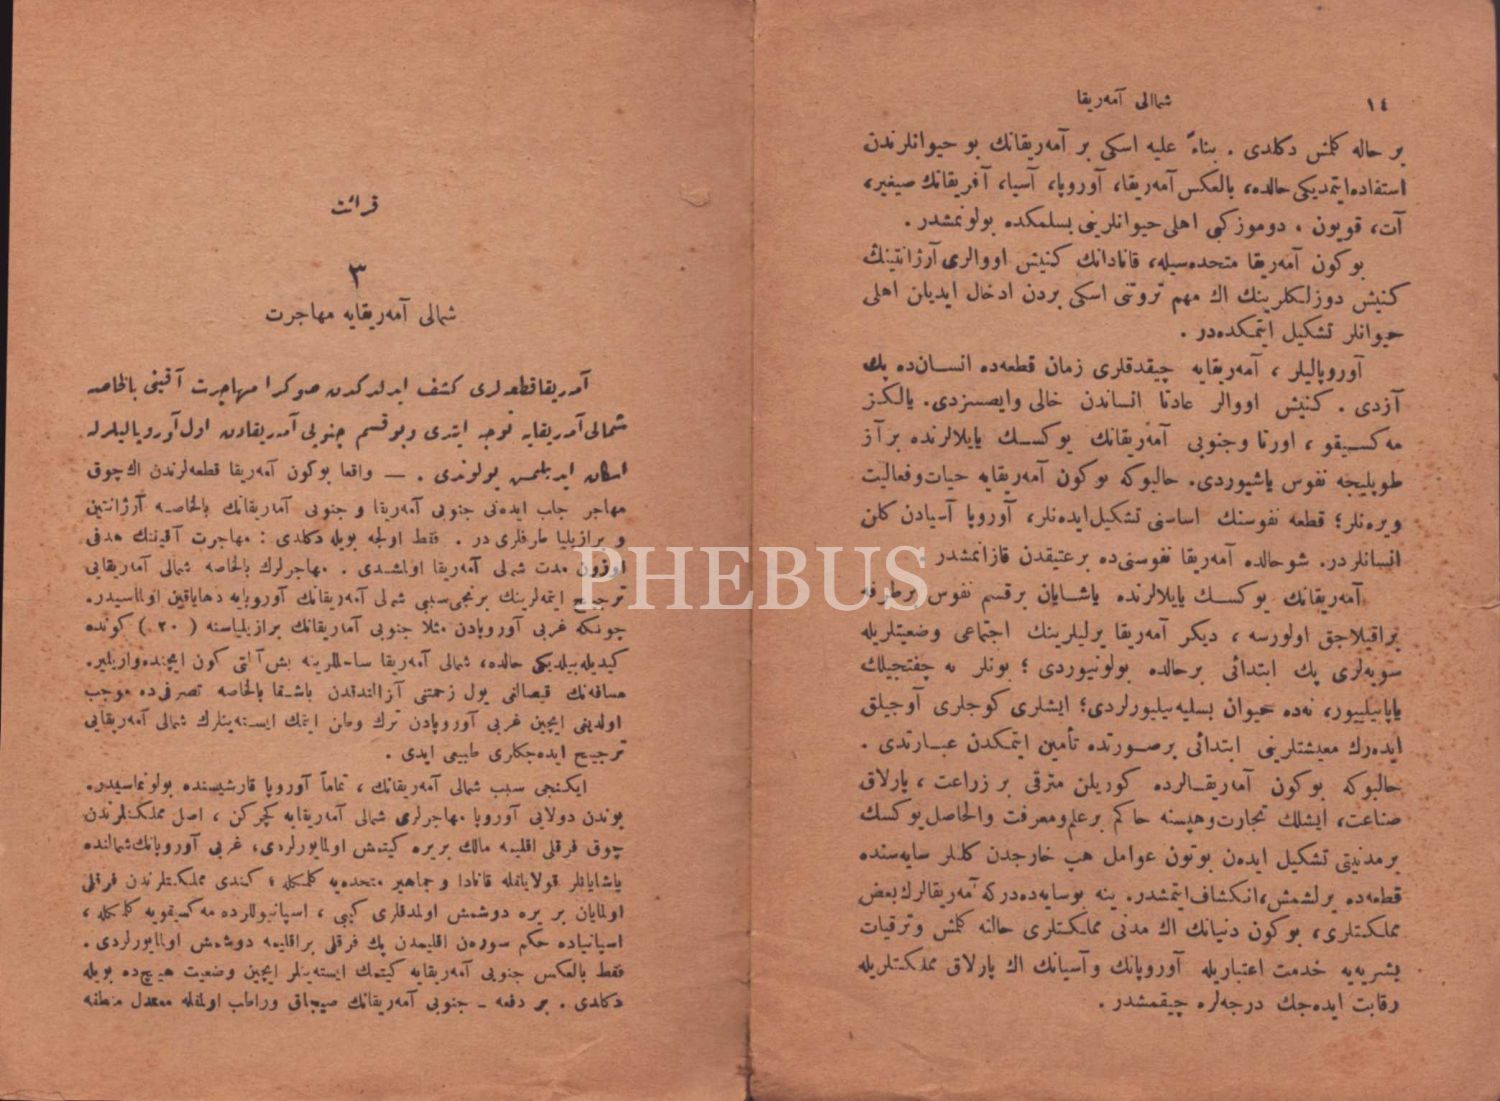 ١٤
شمالی آمه‌ریقا
بر حاله كلمش دكلدی . بناءً علیه اسكی بر آمه‌ریقانك بو حیوانلرندن
استفاده ایتمدیكی حالده، بالعكس آمه‌ریقا، آوروپا، آسیا، آفریقانك صیغیر،
آت، قویون ، دوموز كبی اهلی حیوانلرینی بسلمكده بولونمشدر .
بوكون آمه‌ریقا متحده‌سیله، قانادانك كنیش اووالری آرژانتینڭ
كنیش دوزلكلرینك اك مهم ثروتنی اسكی بردن ادخال ایدیلن اهلی
حیوانلر تشكیل ایتمكده‌در .
آوروپالیلر ، آمه‌ریقایه چیقدقلری زمان قطعه‌ده انسان‌ده پك
آزدی . كنیش اووالر عادتا انساندن خالی وایصسزدی. یالكز
مه‌كسیقو ، اورتا وجنوبی آمه‌ریقانك یوكسك یایلالرنده بر آز
طوپلیجه نفوس یاشیوردی. حالبوكه بوكون آمه‌ریقایه حیات وفعالیت
ویره‌نلر؛ قطعه نفوسنك اساسنی تشكیل‌ایده‌نلر، آوروپا آسیادن كلن
انسانلردر. شو حالده آمه‌ریقا نفوسنی‌ده بر عتیقدن قازانمشدر
آمه‌ریقانك یوكسك یایلالرنده یاشایان برقسم نفوس برطرفه
براقیلاجق اولورسه ، دیكر آمه‌ریقا یرلیلرینك اجتماعی وضعیتلریله
سویه‌لری پك ابتدائی برحالده بولونیوردی ؛ بونلر نه چفتجیلك
یاپابیلییور، نه‌ده حیوان بسلیه‌بیلیورلردی؛ ایشلری كوجلری آوجیلق
ایده‌رك معیشتلرینی ابتدائی برصورتده تأمین ایتمكدن عبارتدی .
حالبوكه بوكون آمه‌ریقالرده كوریلن مترقی بر زراعت ، پارلاق
صناعت، ایشلك تجارت وهپسنه حاكم برعلم‌ومعرفت والحاصل یوكسك
برمدنیتی تشكیل ایده‌ن بوتون عوامل هپ خارجدن كلنلر سایه‌سنده
قطعه‌ده یرلشمش، انكشاف ایتمشدر. ینه بوسایه‌ده‌دركه آمه‌ریقالرك بعض
مملكتلری، بوكون دنیانك اك مدنی مملكتلری حالنه كلمش وترقیات
بشریه‌یه خدمت اعتباریله آوروپانك وآسیانك اك پارلاق مملكتلریله
رقابت ایده‌جك درجه‌لره چیقمشدر .
قرائت
٣
شمالی آمه‌ریقایه مهاجرت
آمه‌ریقا قطعه‌لری كشف ایدلدكدن صوكرا مهاجرت آقینی بالخاصه
شمالی آمه‌ریقایه توجه ایتدی وبو قسم جنوبی آمه‌ریقادن اول آوروپالیلرله
اسكان ایدیلمش بولوندی . — واقعا بوكون آمه‌ریقا قطعه‌لرندن اك چوق
مهاجر جلب ایده‌نی جنوبی آمه‌ریقا و جنوبی آمه‌ریقانك بالخاصه آرژانتین
و برازیلیا طرفلری در . فقط اولجه بویله دكلدی : مهاجرت آقیننك هدفی
اوزون مدت شمالی آمه‌ریقا اولمشدی . مهاجرلرك بالخاصه شمالی آمه‌ریقایی
ترجیح ایتمه‌لرینك برنجی سببی شمالی آمه‌ریقانك آوروپایه دهایاقین اولماسیدر.
چونكه غربی آوروپادن مثلا جنوبی آمه‌ریقانك برازیلیاسنه ( ٢٠ ) كونده
كیدیله‌بیلدیكی حالده، شمالی آمه‌ریقا ساحللرینه بش آلتی كون ایچنده‌واریلیر.
مسافه‌نك قیصالغی یول زحمتنی آزالتدقدن باشقا بالخاصه تصرفی‌ده موجب
اولدیغی ایچین غربی آوروپادن ترك وطن ایتمك ایسته‌ینلرك شمالی آمه‌ریقایی
ترجیح ایده‌جكلری طبیعی ایدی .
ایكنجی سبب شمالی آمه‌ریقانك ، تماماً آوروپا قارشیسنده بولونماسیدر.
بوندن دولایی آوروپا مهاجرلری شمالی آمه‌ریقایه كچركن ، اصل مملكتلرندن
چوق فرقلی اقلیمه مالك بریره كیتمش اولمایورلردی، غربی آوروپانك‌شمالنده
یاشایانلر قولایلقله قانادا و جماهیر متحده‌یه كلمكله ؛ كندی مملكتلرندن فرقلی
اولمایان بر یره دوشمش اولدقلری كیبی ، اسپانیوللرده مه‌كسیقویه كلمكله ،
اسپانیاده حكم سوره‌ن اقلیمدن پك فرقلی براقلیمه دوشمش اولمایورلردی .
فقط بالعكس جنوبی آمه‌ریقایه كیتمك ایسته‌ینلر ایچین وضعیت هیچ‌ده بویله
دكلدی . بر دفعه ـ جنوبی آمه‌ریقانك صیجاق وراطب اولمقله معتدل منطقه
PHEBUS